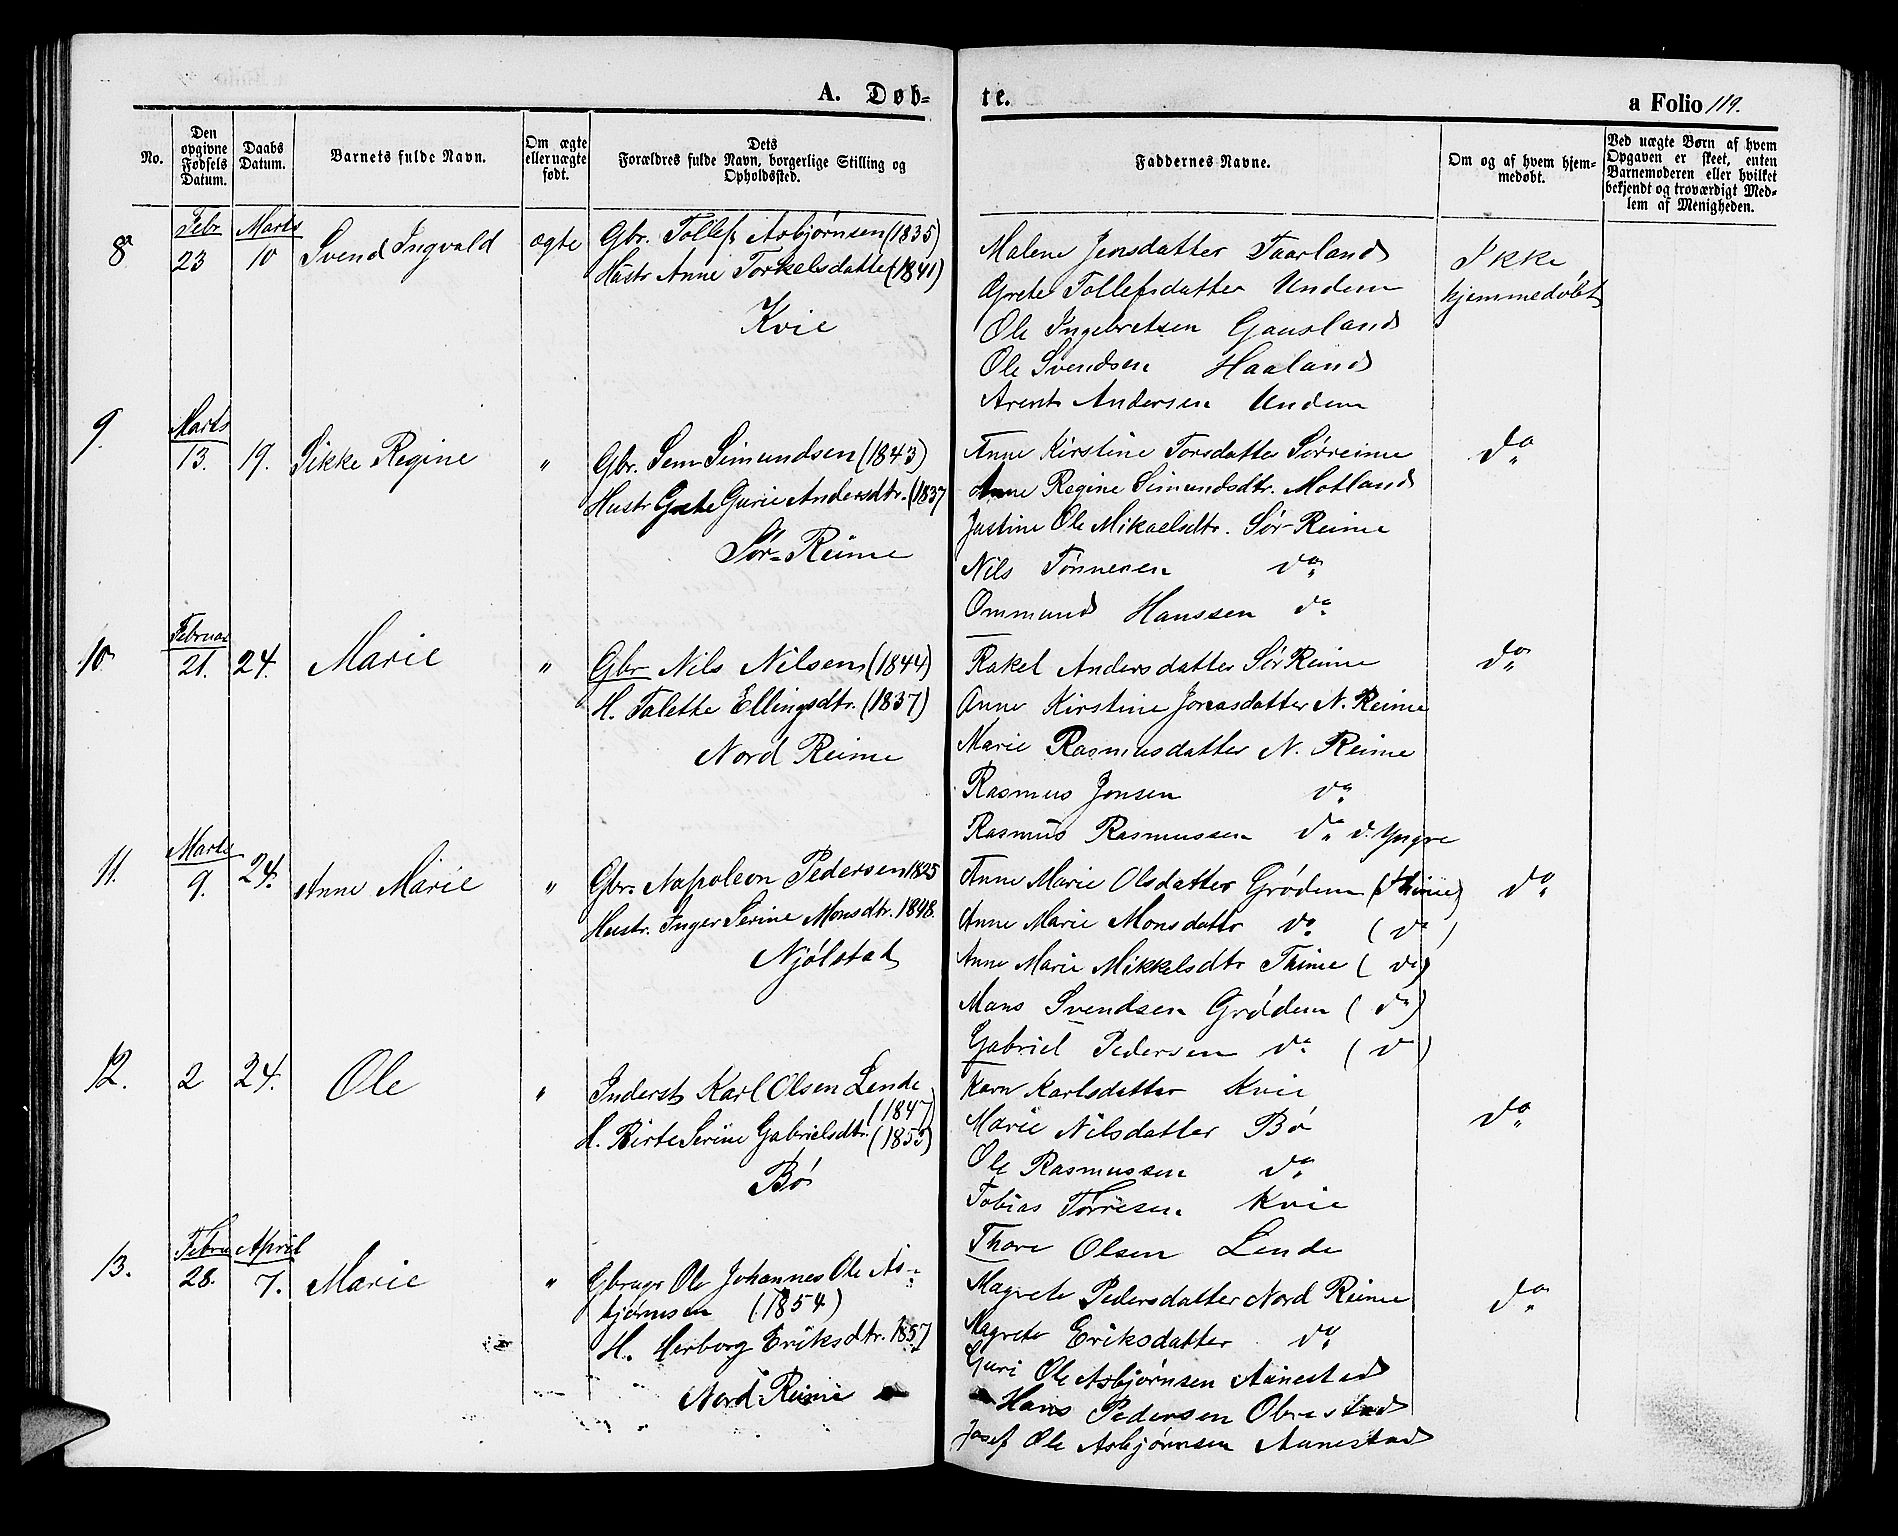 A. Døb-
te.
a Folio 119.
No.
Den opgivne Fødsels Datum.
Daabs Datum.
Barnets fulde Navn.
Om ægte eller uægte født.
Dets Forældres fulde Navn, borgerlige Stilling og Opholdssted.
Faddernes Navne.
Om og af hvem hjemmedøbt.
Ved uægte Børn af hvem Opgaven er skeet, enten Barnemoderen eller hvilket bekjendt og troværdigt Medlem af Menigheden.
8 Febr 23 Marts 10 Svend Ingvald ægte
Gbr. Tollef Asbjørnsen (1835)
Hustr Anne Torkelsdatter (1841)
Kvie
Malene Jensdatter Taarland
Grete Tollefsdatter Undem
Ole Ingebretsen Gausland
Ole Svendsen Haaland
Arent Andersen Undem
Ikke
hjemmedøbt
9. Marts 13. 19. Sikke Regine "
Gbr. Sem Simundsen (1843)
Hustr Grete Gurie Andersdtr. (1837
Sør-Reime
Anne Kirstine Torsdatter Sørreime
Anne Regine Simundsdtr. Motland
Jastine Ole Mikaelsdtr. Sør-Reime
Nils Tønnesen do
Ommund Hanssen do
do
10 Februar 21. 24. Marie "
Gbr Nils Nilsen (1844)
H. Talette Ellingsdtr. (1837)
Nord Reime
Rakel Andersdatter Sør Reime
Anne Kirstine Jonasdatter N. Reime
Marie Rasmusdatter N. Reime
Rasmus Jonsen do
Rasmus Rasmussen do d. Yngre
do
11. Marts 9. 24. Anne Marie "
Gbr. Napoleon Pedersen 1825
Hustr. Inger Serine Monsdtr. 1848.
Njølstad
Anne Marie Olsdatter Grødem (Thime)
Anne Marie Monsdattr do (do)
Anne Marie Mikkelsdtr Thime (do)
Mons Svendsen Grødem (do)
Gabriel Pedersen do (do)
do
12. 2 24. Ole "
Inderst Karl Olsen Lende
(1847)
H. Birte Serine Gabrielsdtr. (1853)
Bø
Karn Karlsdatter Kvie
Marie Nilsdatter Bø
Ole Rasmussen do
Tobias Tørresen Kvie
Thore Olsen Lende
do
13. Febru 28. April 7. Marie "
Gbruger Ole Johannes Ole As-
bjørnsen (1854)
H. Herborg Eriksdtr. 1857
Nord Reime
Magrete Pedersdatter Nord Reime
Magrete Eriksdatter do
Guri Ole Asbjørnsen Aanestad
Hans Pedersen Obrestad
Josef Ole Asbjørnsen Aanestad
do